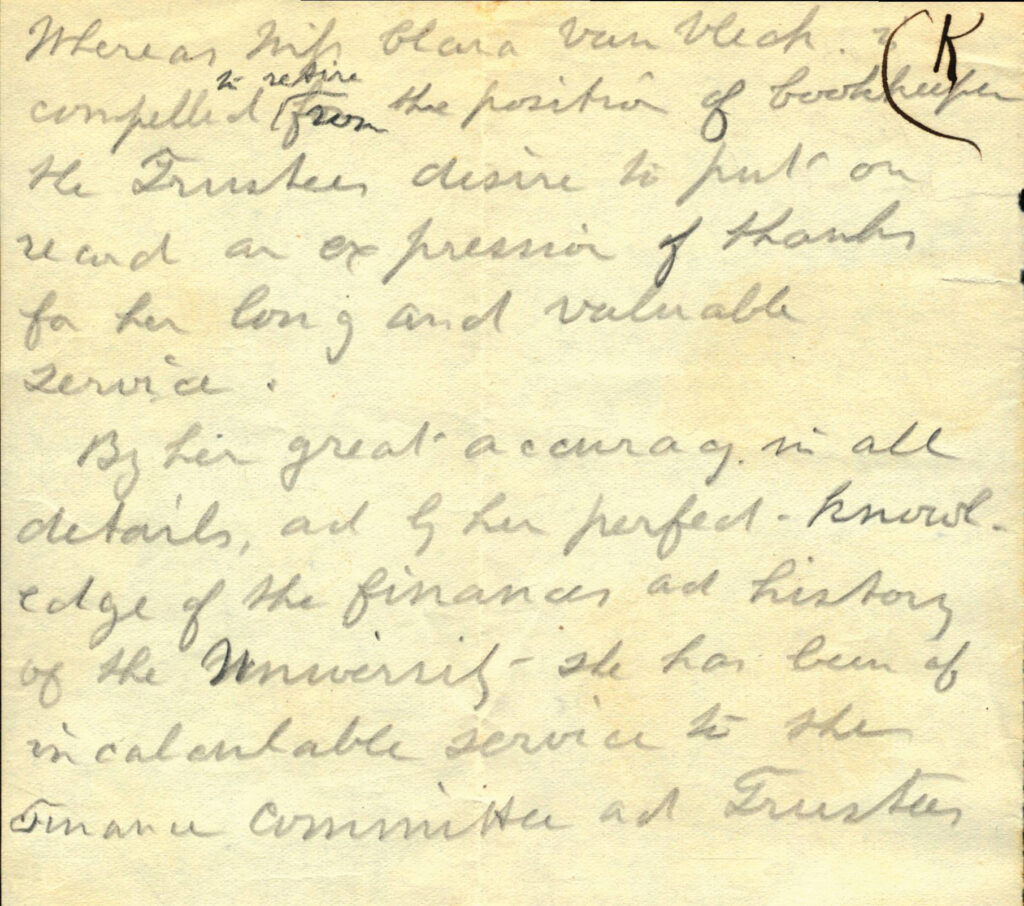 Whereas Miss Clara Van Vleck. is (K
to retire
compelled from the position of bookkeeper
the Trustees desire to put on
record an expression of thanks
for her long and valuable
service.
By her great accuracy in all
details, ad by her perfect - knowl-
edge of the finances ad history
of the University - she has been of
incalculable service to the
Finance Committee ad Trustees